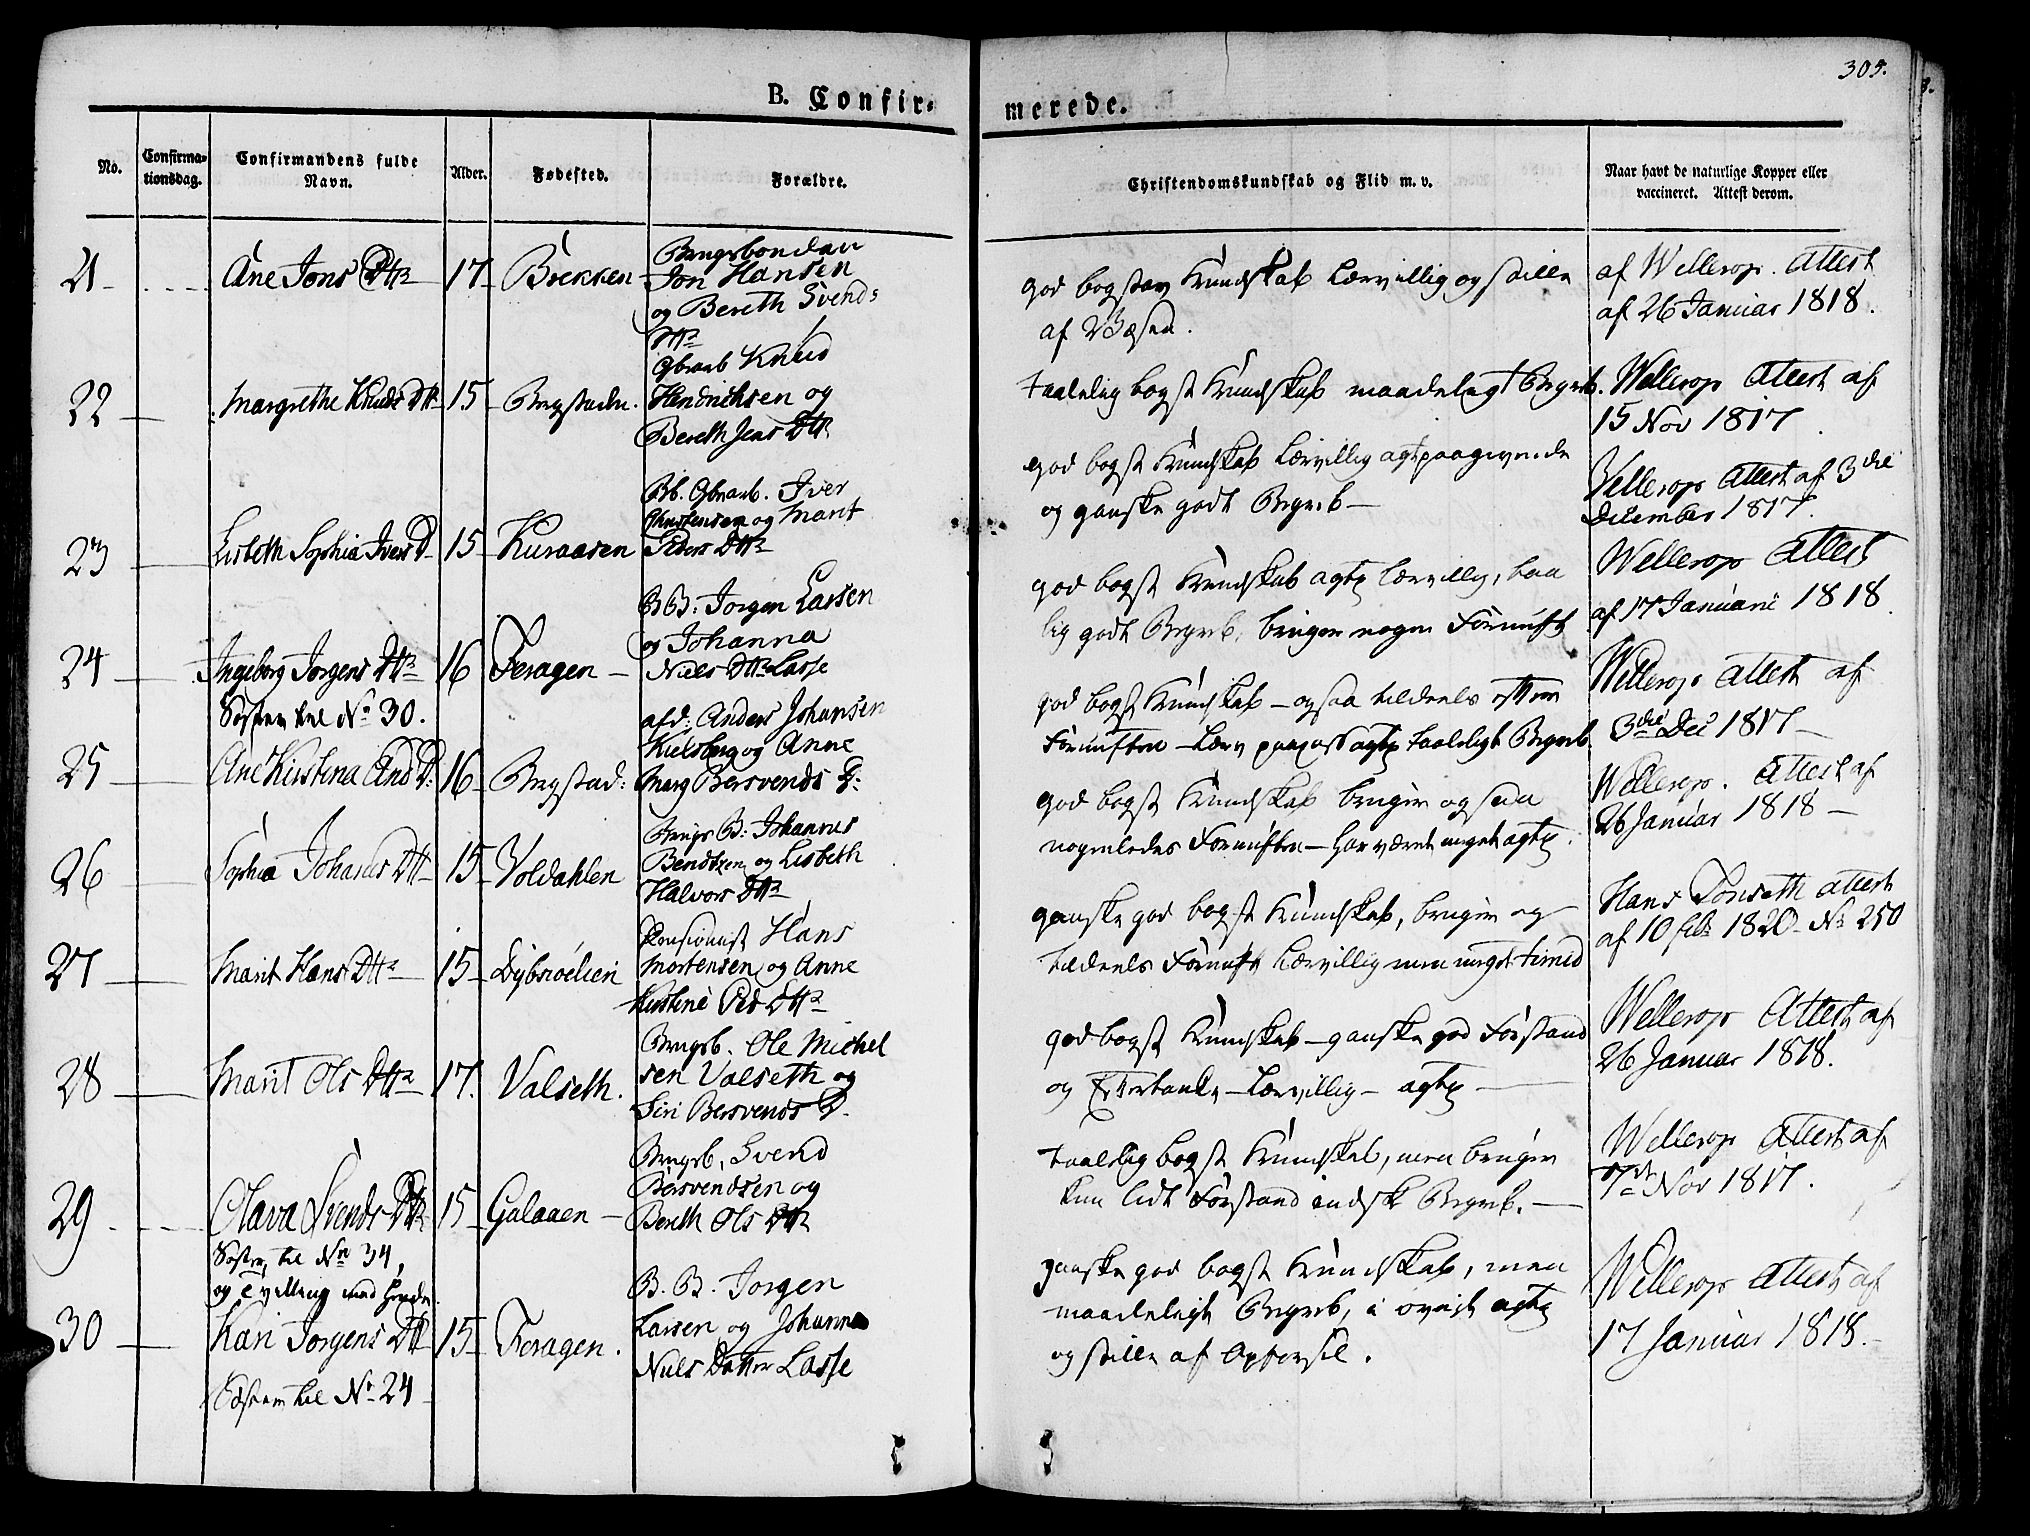 305.
B. Confir-
merede.
No.
Confirma-
tionsdag.
Confirmandens fulde
Navn.
Alder.
Fødested.
Forældre.
Christendomskundskab og Flid m. v.
Naar havt de naturlige Kopper eller
vaccineret. Attest derom.
21
Ane Jons Dttr
17
Brekken
Jon Hansen
og Bereth Svends
Dttr
god bogstav Kundskab lærvillig og stille
af Væsen.
af Wellerop. Attest
af 26 Januar 1818.
22
Margrethe Knuds Dtr
15
Bergstaden.
Knud
Hendrichsen og
Bereth Jens Dttr
taalelig bogst Kundskab maadeligt Begreb.
Wellerop Attest af
15 Nov 1817.
23
Lisbeth Sophia Ivers D
15
Kuraasen
Iver
Christensen og Marit
Peders Dttr
god bogst Kundskab lærvillig agtpaagivende
og ganske godt Begreb
Wellerop Attest af 3die
December 1817.
24
Ingeborg Jorgens Dttr
Søster til No 30.
16
Feragen
B B: Jorgen Larsen
og Johanna
Niels Dttr Lasse
god bogst Kundskab agtp lærvillig,
godt Begreb, bruger nogen Fornuft
Wellerop Attest
af 17 Januari 1818.
25
Ane Kirstina And D:
16
Bergstad:
afd: Anders Johansen
Kielsberg og Anne
Marg Bersvends D:
god bogst Kundskab - ogsaa tildeels
Fornuften - agtp taaleligt Begreb
Wellerop Attest af
3die Dec 1817
26
Sophia Johanes Dtt
15
Voldahlen
Brugs B: Johannes
Bendtzen og Lisbeth
Halvors Dttr
god bogst Kundskab bruger ogsaa
nogenledes Fornuften - har været meget agtp.
Wellerop. Attest af
26 Januar 1818
27
Marit Hans Dttr
15
Dybsiøelien
Pensionist Hans
Mortensen og Anne
Kirstine Ped Dttr
ganske god bogst Kundskab, bruger og
tildeels Fornuft lærvillig men meget timid
Hans Tønseth Attest
af 10 feb 1820 No 250
28
Marit Ols Dttr
17.
Valseth.
Brugsb. Ole Michel
sen Valseth og
Siri Bersvends D.
god bogst Kundskab - ganske god Forstand
og Eftertanke - Lærvillig - agtp
Wellerop Attest af
26 Januar 1818.
29
Olava Svends Dttr
Søster til No 34,
og Tvilling med hende.
15
Galaaen
Brugsb. Svend
Bersvendsen og
Bereth Ols Dttr
taalelig bogst Kundskab, men bruger
kun lidt Forstand indsk Begreb.
Wellerop Attest af
7de Nov 1817.
30
Kari Jorgens Dtt
Søster til No 24
15
Feragen.
B. B. Jorgen
Larsen og Johanna
Niels Datter Lasse
ganske god bogst Kundskab, men
maadeligt Begreb, i øvrigt agtp
og stille af Opførsel.
Wellerop Attest af
17 Januar 1818.